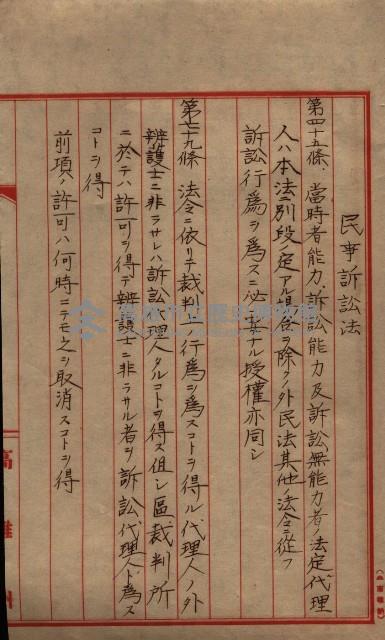 民事訴訟法
第四十五條、當時者能力、訴訟能力及訴訟無能力者ノ法定代理
人ハ本法ニ別段ノ定アル場合ヲ除ク外民法其他ノ法令ニ從フ
訴訟行爲ヲ爲スニ必要ナル授權亦同シ
第七十九條 法令ニ依リテ裁判上ノ行爲ヲ爲スコトヲ得ル代理人ノ外
辨護士ニ非ラサレハ訴訟代理人タルコトヲ得ス但シ區裁判所
ニ於テハ許可ヲ得テ辨護士ニ非ラサル者ヲ訴訟代理人ト爲ス
コトヲ得
前項ノ許可ハ何時ニテモ之ヲ取消スコトヲ得
高雄州